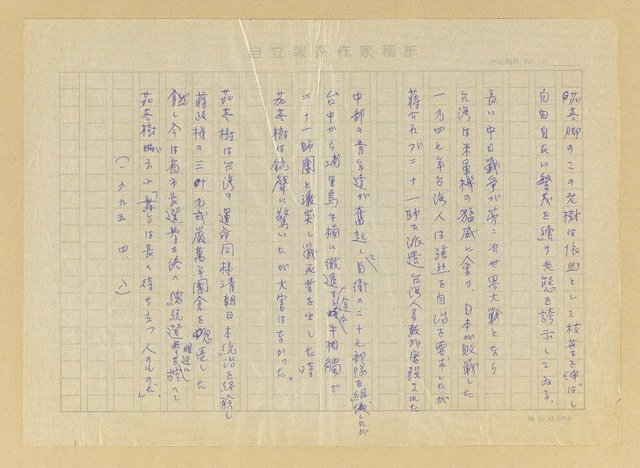 自立報系作家稿紙
茄苳脚のこの老樹は依然として枝葉を伸ばし
自由自在に繁茂を續け老態を誇示してゐる。
長い中日戰争が第二次世界大戰となり
台湾は米軍機の猛威に会ひ、日本が敗戰した
一九四七年台湾人は強烈な自治を要求したが
蒋介石が二十一師を派遣台湾人多数が屠殺された
中部の青年達が奮起し自衛の二十七部隊を組織したが
台中から埔里烏牛欄に徹進する途中蝸牛相觸で
二十一師團と激突し戰死者を出した時
茄苳樹は銃聲に驚いたが大害はなかった。
茄苳樹は台湾の運命同様清朝日本統治を経験し
蒋政権の三十九年戒厳萬年國会を
然し今は省市長選挙を終へ總統選挙を控へて
茄苳樹は云ふ「舞台は長く待ち立つ人のものだ」
(一九九五、四、八)